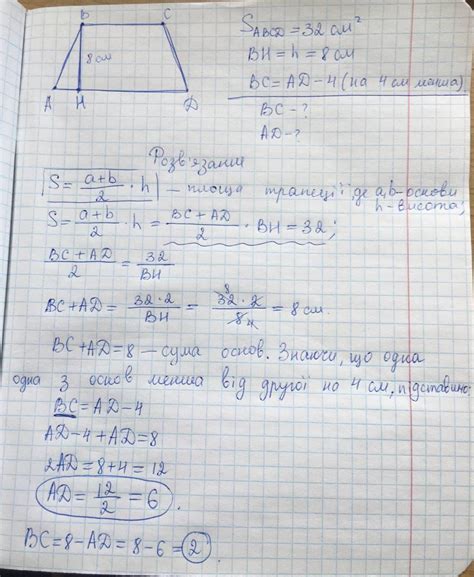 B C
8см
A H D
S_ABCD = 32 см²
BH = h = 8 см
BC = AD - 4 (на 4 см менша)
BC - ?
AD - ?
Розв'язання
S = (a+b)/2 · h — площа трапеції, де a,b - основи
h - висота;
S = (a+b)/2 · h = (BC+AD)/2 · BH = 32;
(BC+AD)/2 = 32/BH
BC+AD = (32·2)/BH = (32·2)/8 = 8 см.
BC+AD = 8 — сума основ. Знаючи, що одна
одна з основ менша від другої на 4 см, підставимо
BC = AD - 4
AD - 4 + AD = 8
2AD = 8 + 4 = 12
AD = 12/2 = 6.
BC = 8 - AD = 8 - 6 = 2